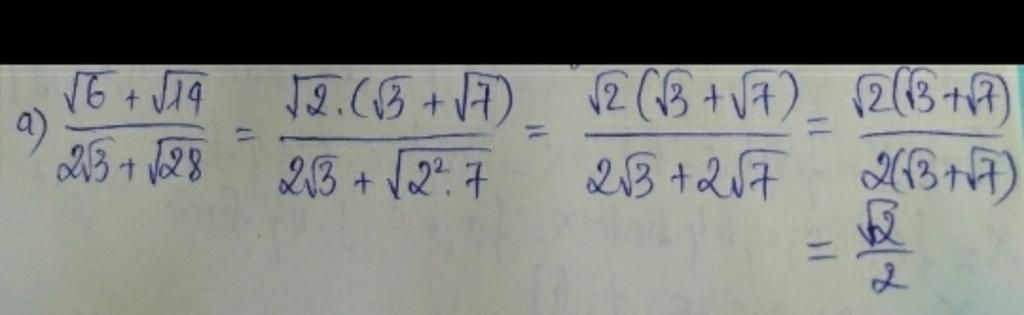 a) (√6 + √14)/(2√3 + √28) = (√2.(√3 + √7))/(2√3 + √(2².7)) = (√2(√3 + √7))/(2√3 + 2√7) = (√2(√3+√7))/(2(√3+√7))
= √2/2